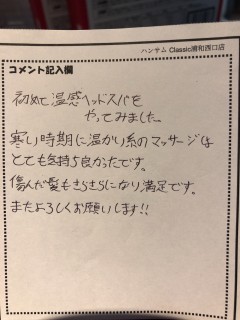 ハンサム Classic浦和西口店
コメント記入欄
初めて温感ヘッドスパを
やってみました。
寒い時期に温かい系のマッサージは
とても気持ち良かったです。
傷んだ髪もさらさらになり満足です。
またよろしくお願いします!!